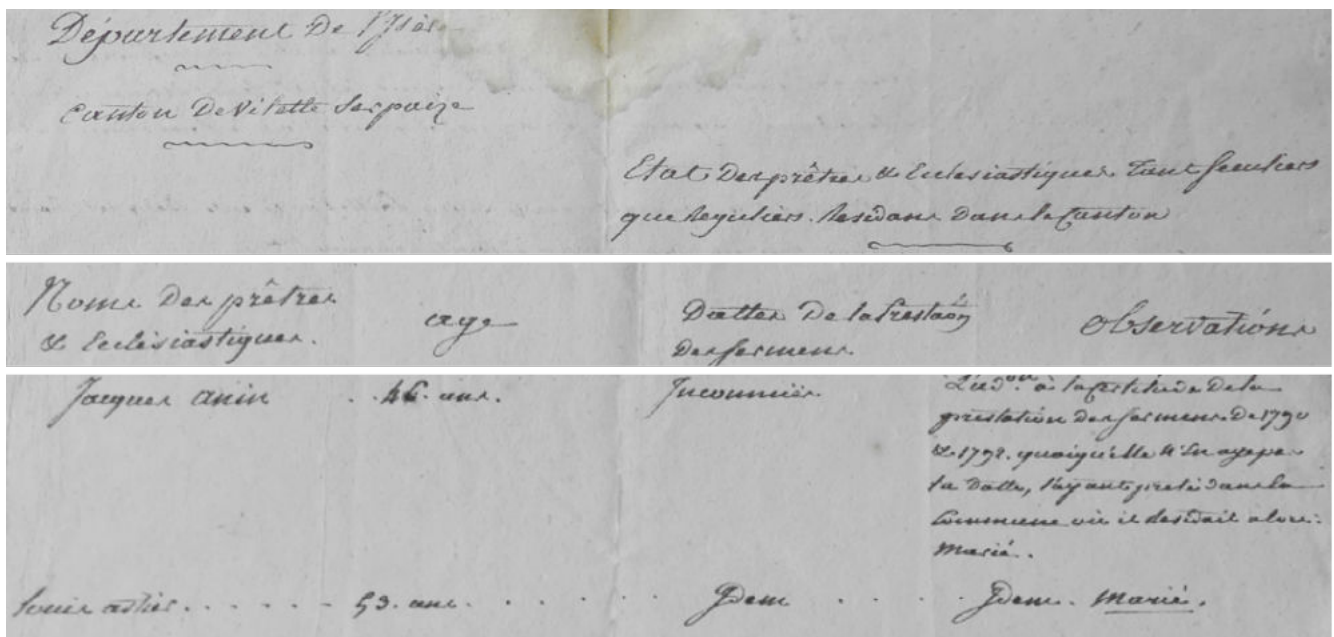 Département De l'Isère
Canton De Vilette Serpaize
Etat Des prêtres & Ecclesiastiques tant seculiers
que Reguliers. Residans Dans le Canton
Noms Des prêtres
& Ecclésiastiques.
age
Dattes De la Prestaõn
des sermens.
observations
Jacques anin . . 46. ans. Inconnües
L'adon. à la certitude De la
prestation des sermens De 1790
& 1792. quoiqu'elle n'en aye pas
la Datte, l'ayant preté dans la
Commune où il Residait alors.
marié.
Louis astier. . . . . . 53. ans. . . . . . Idem . . . . Idem. marié.